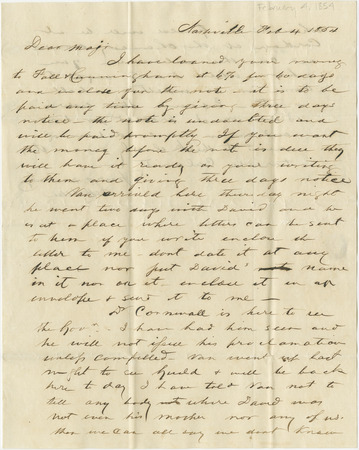 February 4, 1854
Nashville Feb 4 1854
Dear Major
I have loaned your money
to Fall & Cunningham at 6% for 60 days
and enclose you the note - it is to be
paid any time by giving three days
notice - the note is undoubted and
will be paid promptly If you want
the money before the note is due they
will have it ready on your writing
to them and giving three days notice
Van arrived here thursday night
he went two days with David and he
is at a place where letters can be sent
to him if you write enclose the
letter to me - dont date it at any
place nor put David's name
in it nor on it enclose it in an
envelope & send it to me -
Dr Cornwall is here to see
the Gov. I have had him seen and
he will not issue his proclamation
unless compelled. Van went up last
night to see Guild & will be back
here to day I have told Van not to
tell any body where David was
not even his mother nor any of us
then we can all say we dont know